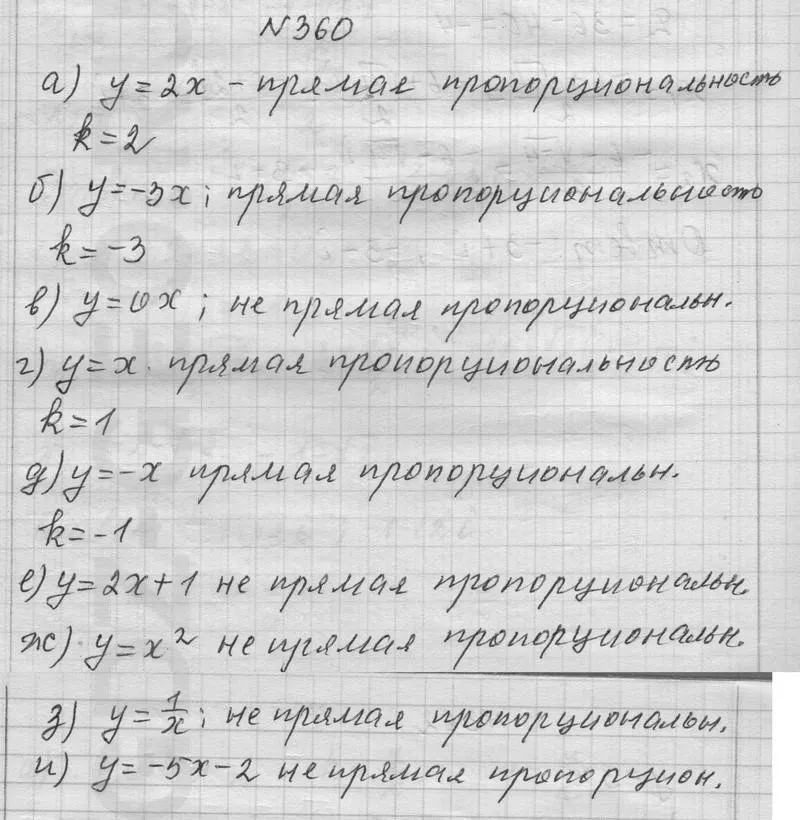 N360
а) y = 2x - прямая пропорциональность
k = 2
б) y = -3x; прямая пропорциональность
k = -3
в) y = 0x; не прямая пропорциональн.
г) y = x. прямая пропорциональность
k = 1
д) y = -x прямая пропорциональн.
k = -1
е) y = 2x + 1 не прямая пропорциональн.
ж) y = x² не прямая пропорциональн.
з) y = 1/x; не прямая пропорциональн.
и) y = -5x - 2 не прямая пропорцион.